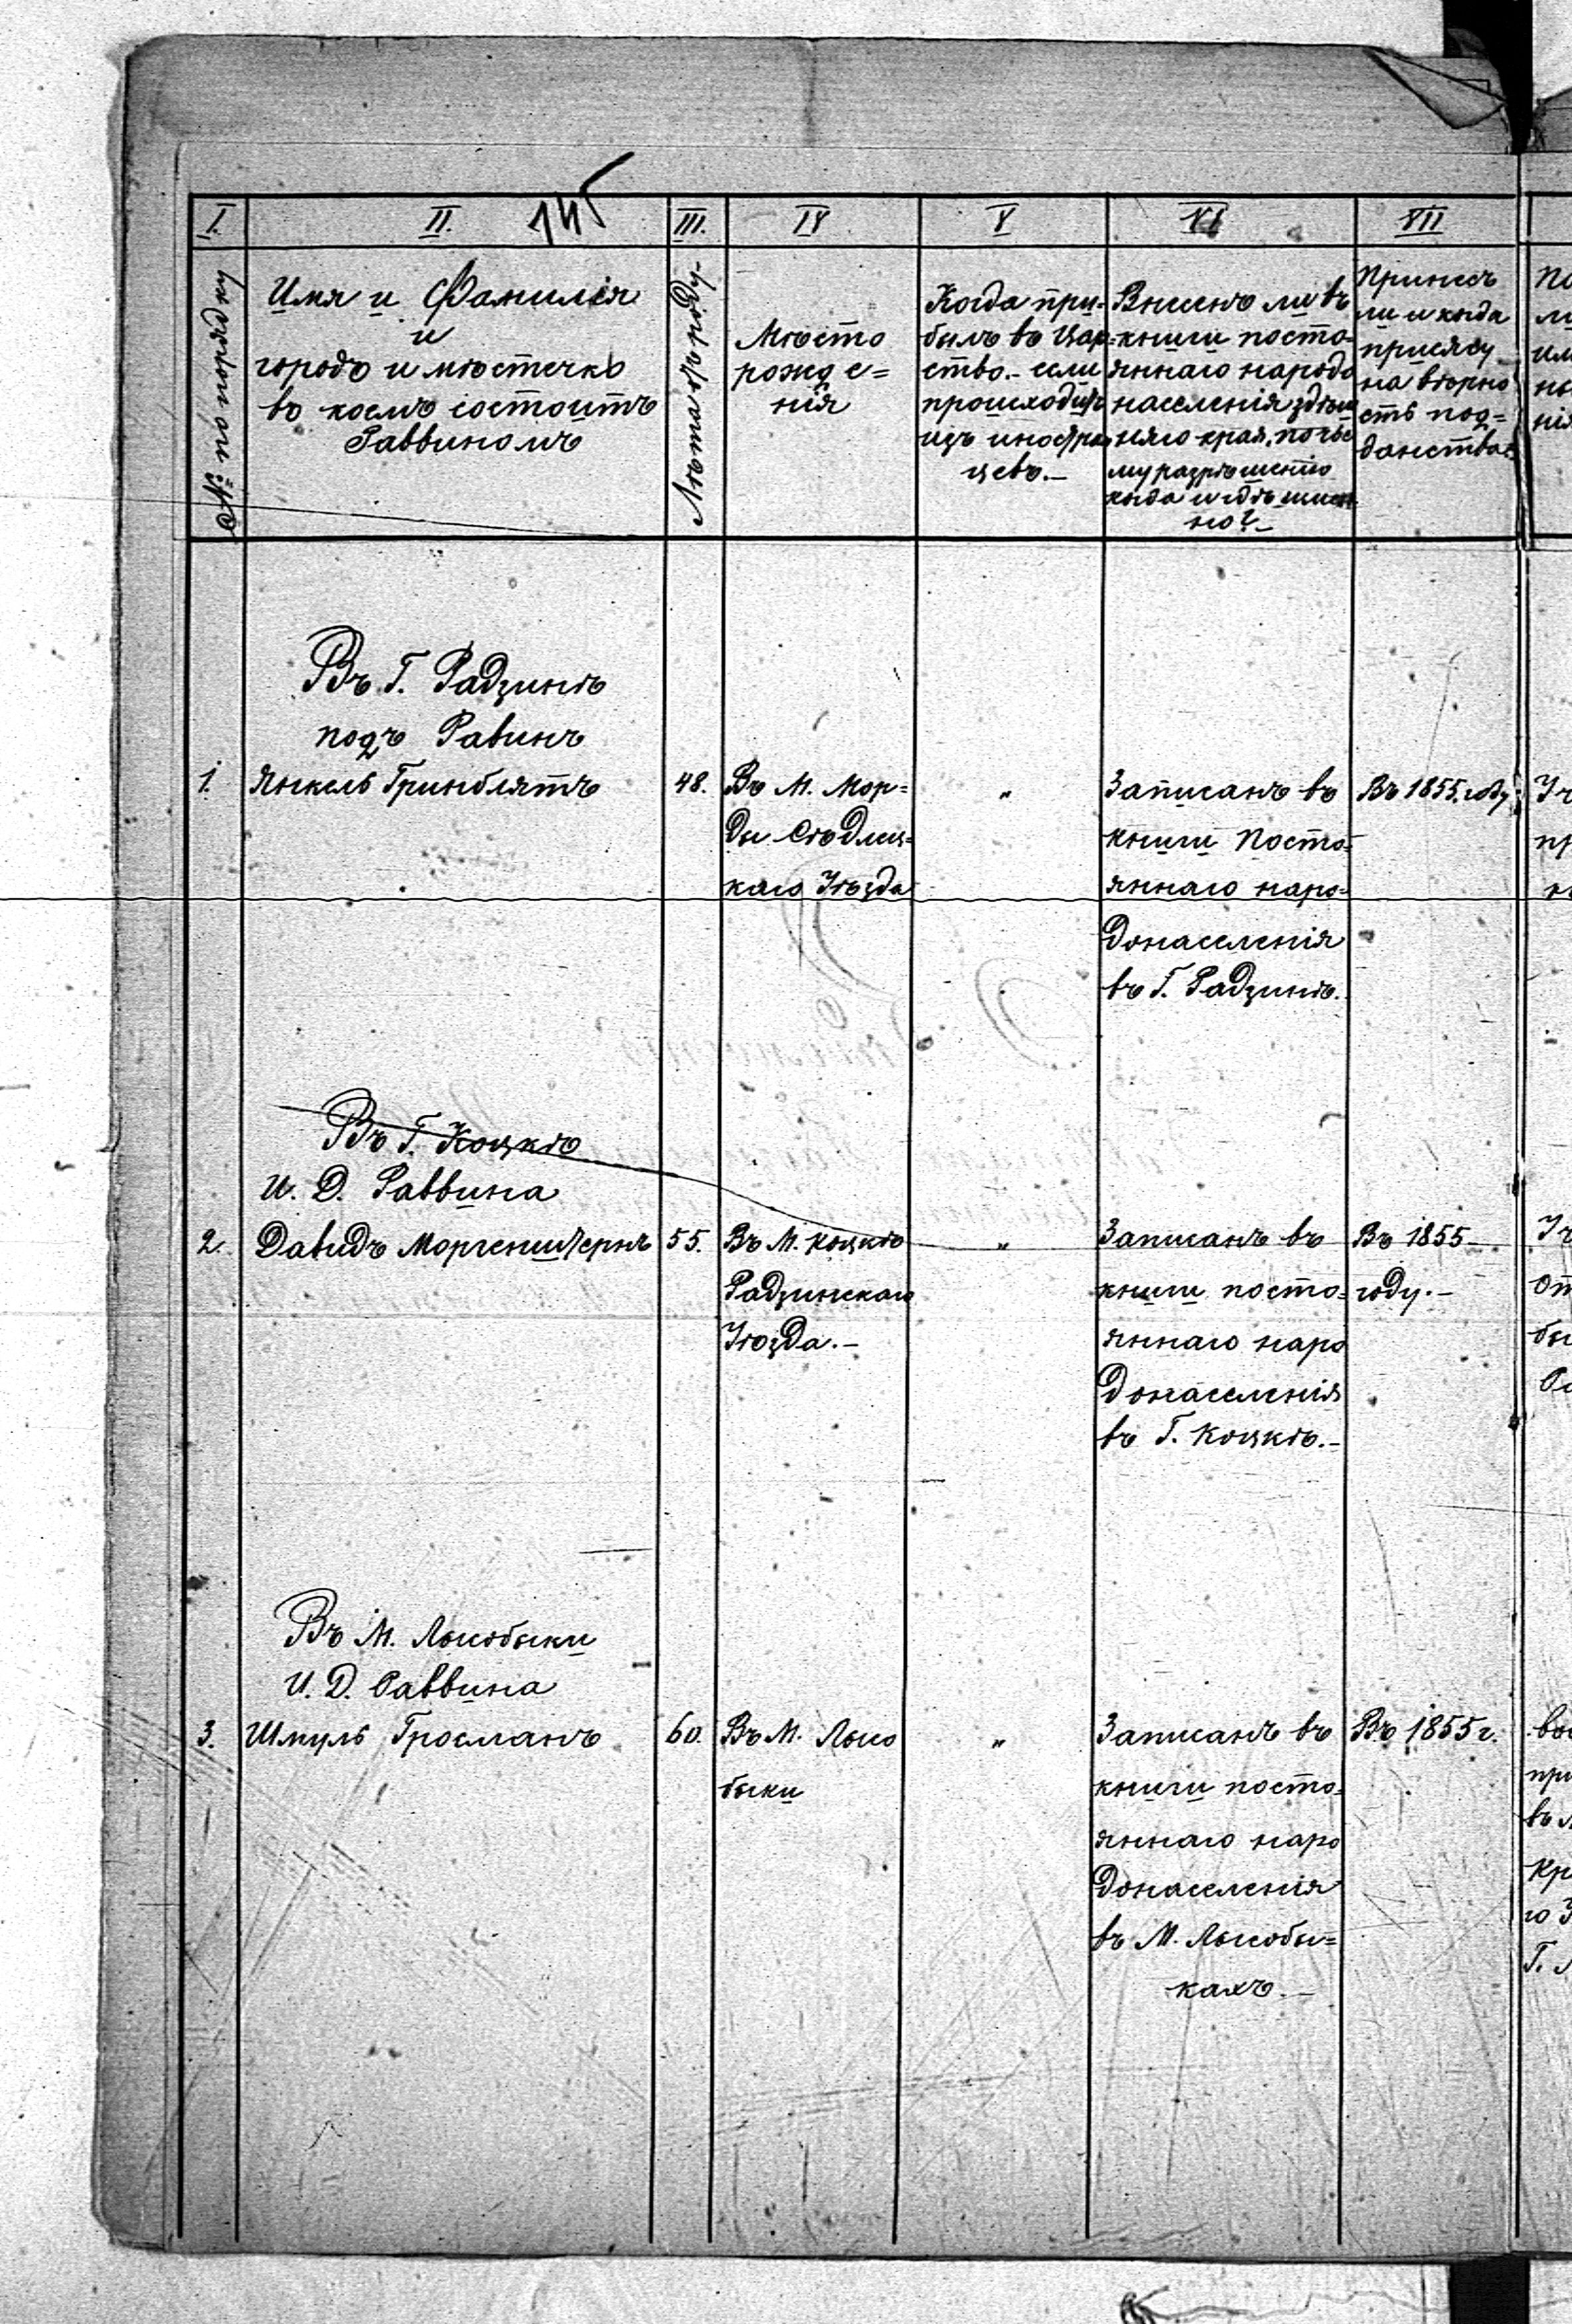 145
I. II. III. IV V VI VII
№ по порядку
Имя и Фамилія
и
городъ и мѣстечко
въ коемъ состоитъ
Раввиномъ
Лѣта отъ роду.
Мѣсто
рожде=
нія
Когда при=
былъ въ Цар=
ство.- если
происходитъ
изъ иностран
цевъ.-
Внесенъ ли въ
книги посто=
яннаго народо
населенія здѣш
няго края, по чье
му разрѣшенію
когда и гдѣ именн
но?-
Принесъ
ли и когда
присягу
на вѣрно
сть под=
данства.
Въ Г. Радзинѣ
подъ Равинъ
1. Янкель Гринблятъ
48.
Въ М. Мор=
ды Сѣдлец=
каго Уѣзда
"
Записанъ въ
книги Посто=
яннаго наро=
донаселенія
въ Г. Радзинѣ.
Въ 1855. году
Въ Г. Коцкѣ
И. Д. Раввина
2. Давидъ Моргенштернъ
55.
Въ М. Коцкѣ
Радзинскаго
Уѣзда.-
"
Записанъ въ
книги посто=
яннаго наро
донаселенія
въ Г. Коцкѣ.-
Въ 1855
году.-
Въ М. Лысобыки
И. Д. Раввина
3. Шмуль Гросманъ
60.
Въ М. Лысо
быки
"
Записанъ въ
книги посто=
яннаго наро
донаселенія
въ М. Лысобы=
кахъ.-
Въ 1855 г.